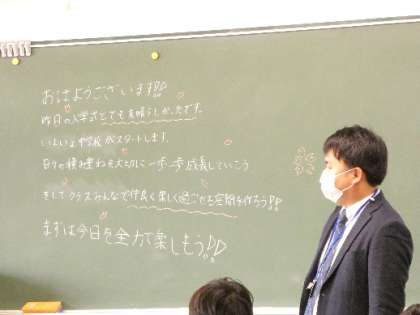 おはようございます!!
昨日の入学式とても素晴らしかったです。
いよいよ中学校がスタートします。
日々の積み重ねを大切に一歩一歩成長していこう
そしてクラスみんなで仲良く楽しく過ごせる空間を作ろう!!
まずは今日を全力で楽しもう!!